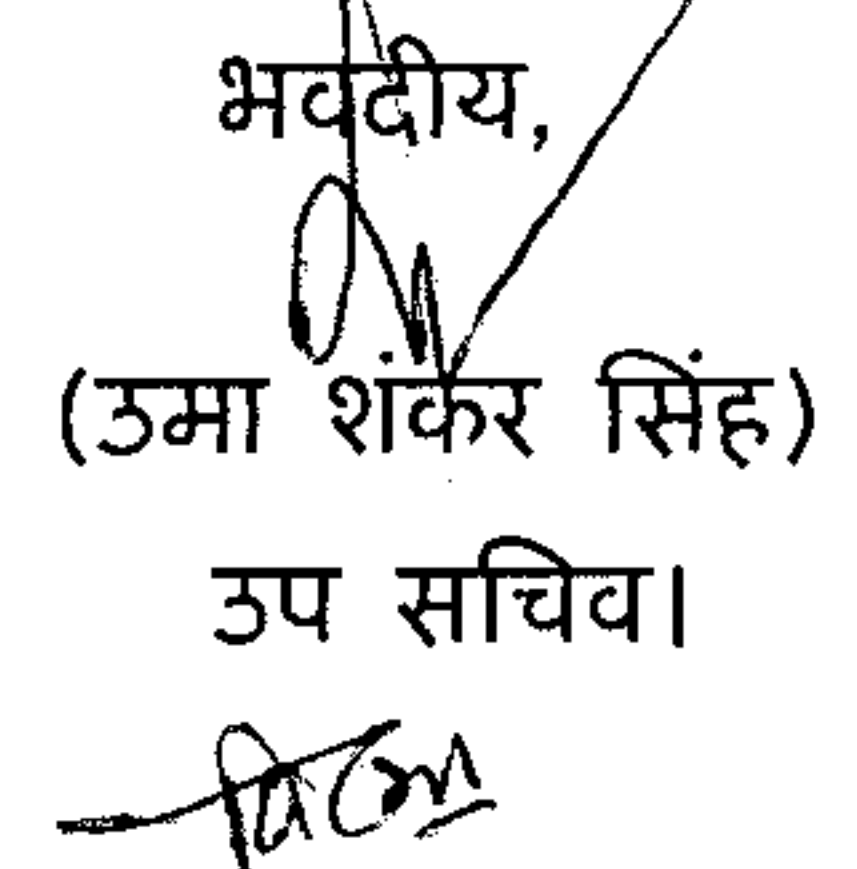 भवदीय,
(उमा शंकर सिंह)
उप सचिव।